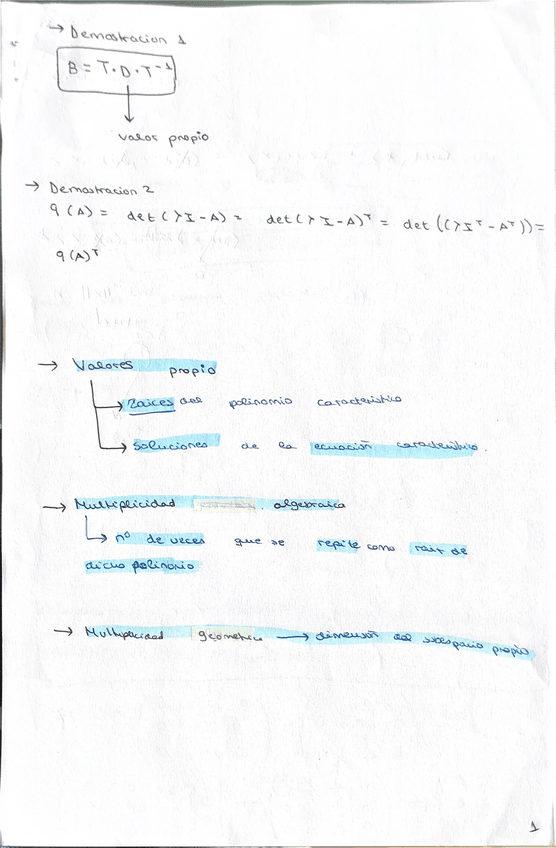 → Demostracion 1
B = T · D · T⁻¹
valor propio
→ Demostracion 2
q(A) = det(λI - A) = det(λI - A)ᵀ = det((λIᵀ - Aᵀ)) =
q(A)ᵀ
→ Valores propio
→ Raices del polinomio caracteristico
→ Soluciones de la ecuación caracteristica.
→ Multiplicidad algebraica
→ nº de veces que se repite como raiz de
dicho polinomio
→ Multiplicidad geometrica → dimension del subespacio propio
1